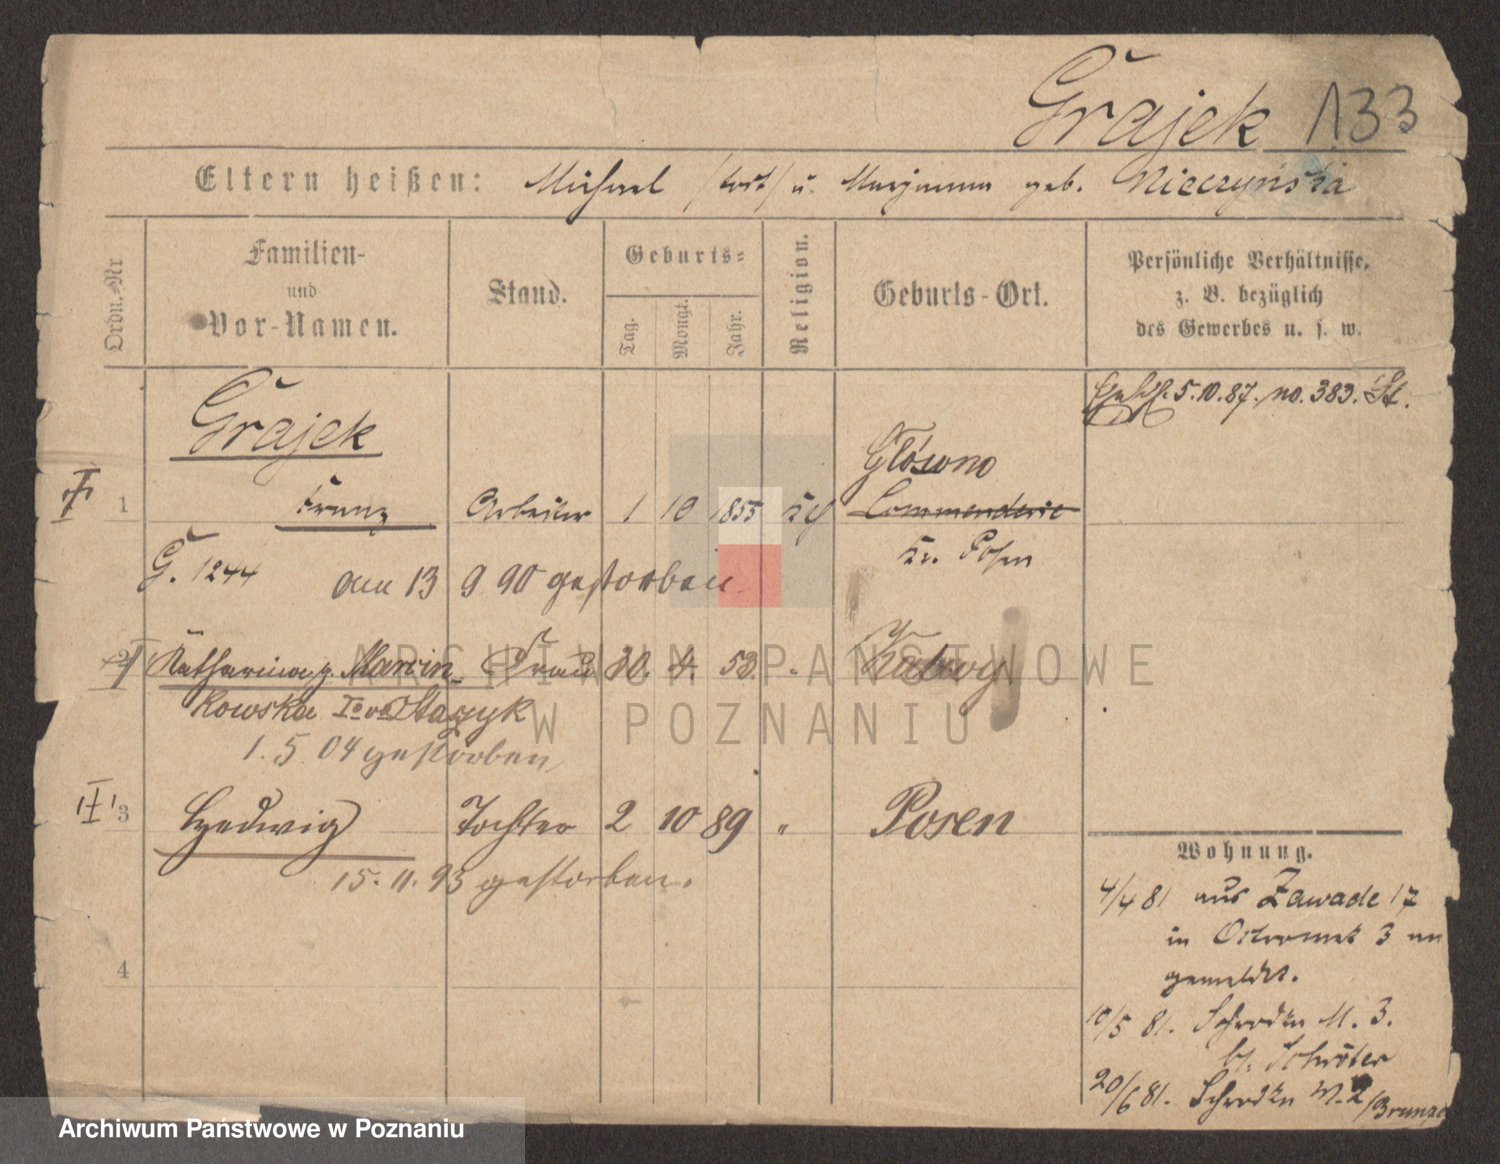 Grajek 133
Eltern heißen: Michael /tot/ u. Marjanna geb. Nieczyńska
Ordn.-Nr
Familien-
und
Vor-Namen.
Stand.
Geburts-
Tag.
Monat.
Jahr.
Religion.
Geburts-Ort.
Persönliche Verhältnisse,
z. B. bezüglich
des Gewerbes u. s. w.
5.10.87. no. 383. St.
Grajek
Główno
I 1 Franz Arbeiter 1 10 1855 kch Commenderie
Kr. Posen
G. 1244 den 13 9 90 gestorben
II 2 Katharina g. Marcin- Frau 30. 4. 53. "
kowska Io vo Staszyk
1.5 04 gestorben
III 3 Hedwig Tochter 2 10 89 " Posen
15.11.93 gestorben.
4
Wohnung.
4/4 81 aus Zawade 17
in Ostrowek 3 an
gemeldet.
10/5 81. Schrodka M. 3.
b. Schröter
20/6 81. Schrodka M. 2
ARCHIWUM PAŃSTWOWE
W POZNANIU
Archiwum Państwowe w Poznaniu